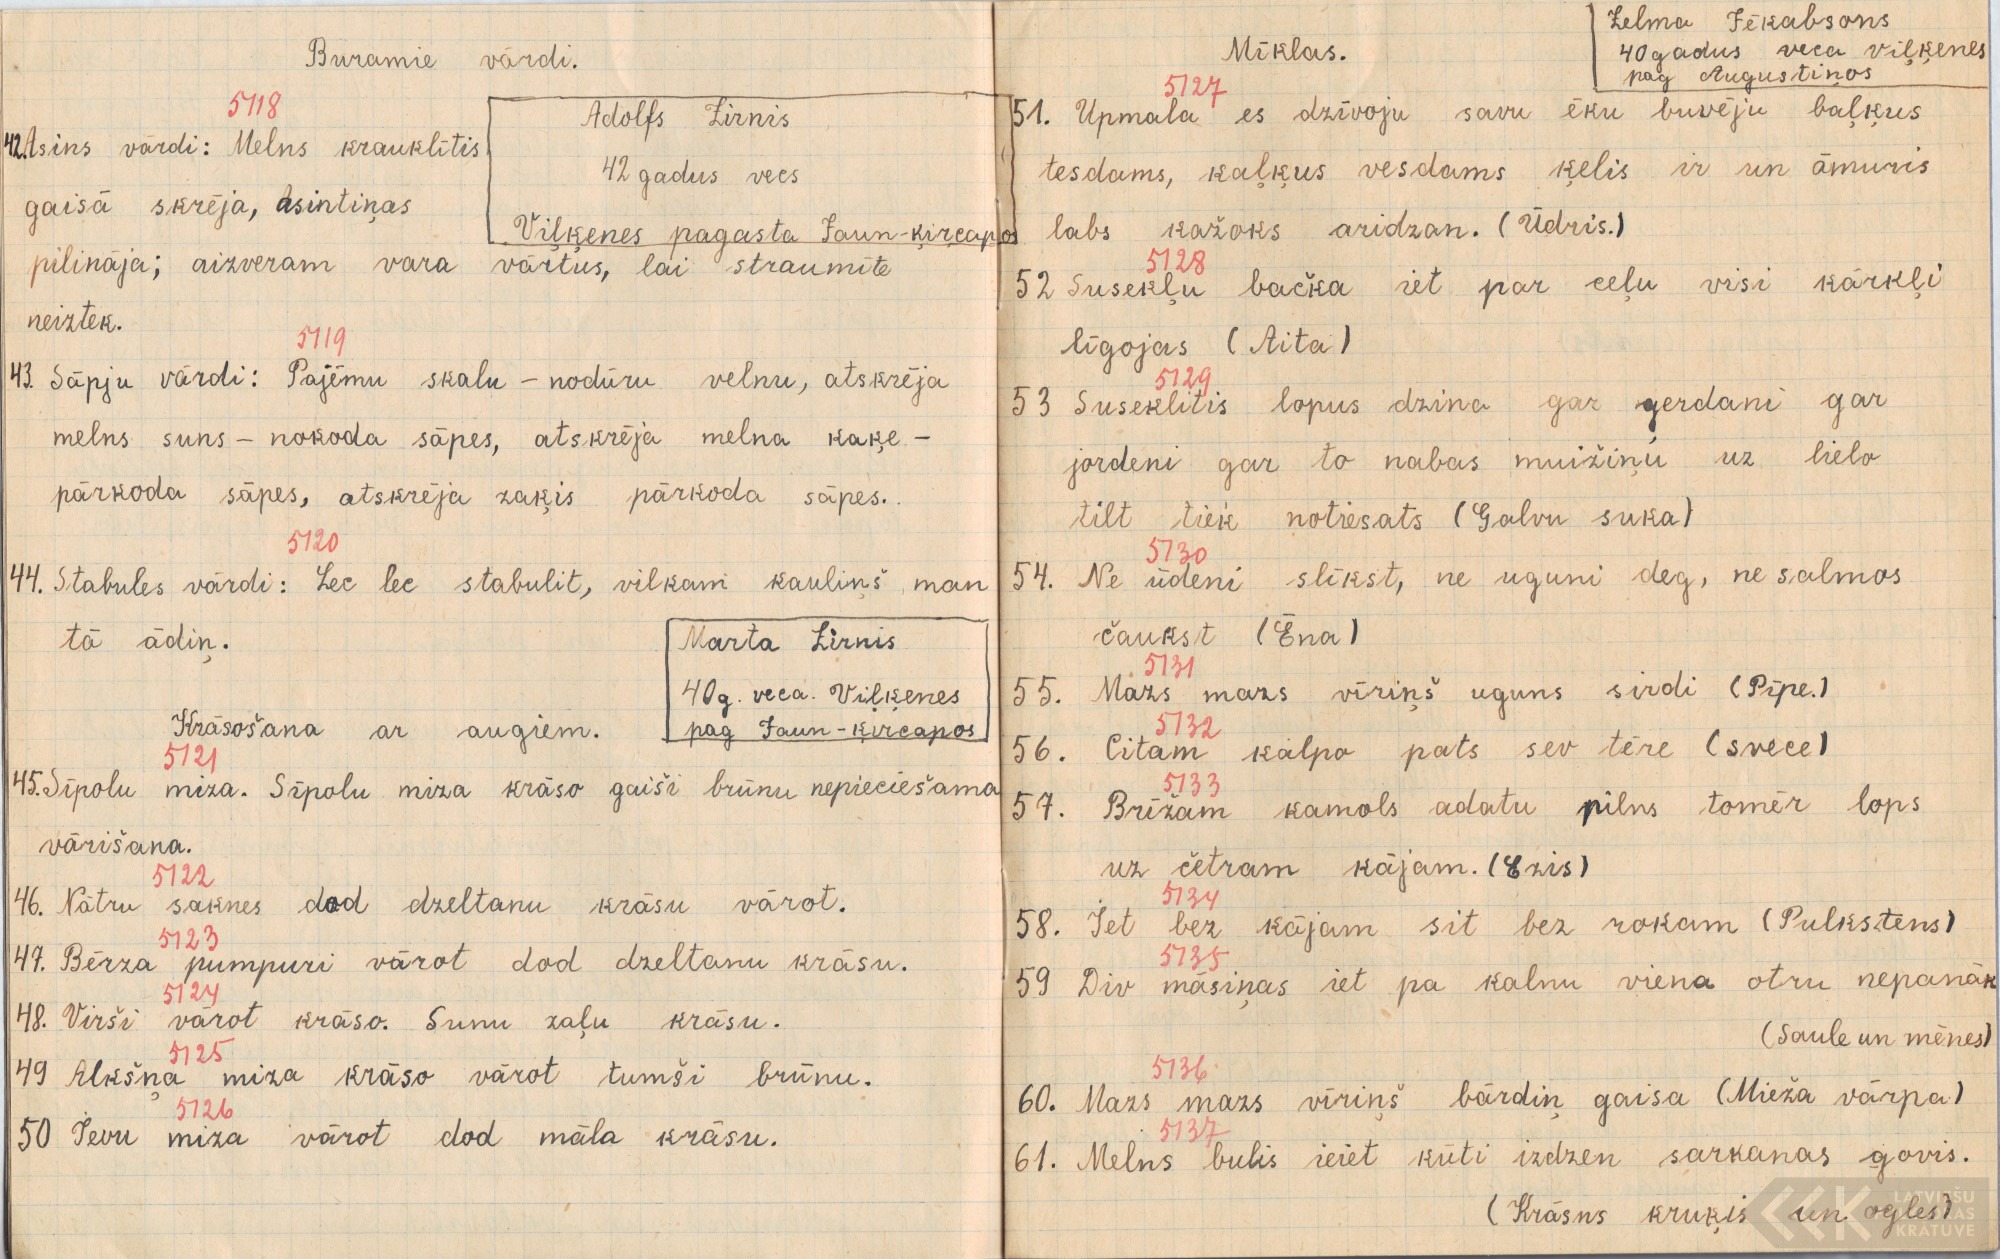 Buramie vārdi.
5118
42. Asins vārdi: Melns krauklītis
gaisā skrēja, Asintiņas
pilināja; aizveram vara vārtus, lai straumīte
neiztek.
Adolfs Zirnis
42 gadus vecs
Viļķenes pagasta Jaun-ķirēapos
5119
43. Sāpju vārdi: Pajēmu skalu – nodūru velnu, atskrēja
melns suns – nokoda sāpes, atskrēja melna kaķe –
pārkoda sāpes, atskrēja zaķis pārkoda sāpes..
5120
44. Stabules vārdi: Lec lec stabulit, vilkam kauliņš man
tā ādiņ.
Marta Zirnis
40g. veca. Viļķenes
pag Jaun-ķircapos
Krāsošana ar augiem.
5121
45. Sīpolu miza. Sīpolu miza krāso gaiši brūnu nepieciešama
vārišana.
5122
46. Nātru saknes dod dzeltanu krāsu vārot.
5123
47. Bērza pumpuri vārot dod dzeltanu krāsu.
5124
48. Virši vārot krāso. Sunu zaļu krāsu.
5125
49 Alkšņa miza krāso vārot tumši brūnu.
5126
50 Ievu miza vārot dod māla krāsu.
Mīklas.
Zelma Jēkabsons
40 gadus veca viļķenes
pag Augustiņos
5127
51. Upmala es dzīvoju savu ēku buvēju baļķus
tesdams, kaļķus vesdams ķelis ir un āmuris
labs kažoks aridzan. (Ūdris.)
5128
52 Susekļu bačka iet par ceļu visi kārkļi
līgojas (Aita)
5129
53 Suseklitis lopus dzina gar gerdani gar
jordeni gar to nabas muižiņu uz lielo
tilt tiek notiesats (Galvu suka)
5130
54. Ne ūdeni slīkst, ne uguni deg, ne salmos
čaukst (Ēna)
5131
55. Mazs mazs vīriņš uguns sirdi (Pīpe.)
5132
56. Citam kalpo pats sev tēre (svece)
5133
57. Brīžam kamols adatu pilns tomēr lops
uz četram kājam. (Ezis)
5134
58. Iet bez kājam sit bez rokam (Pulkstens)
5135
59 Div māsiņas iet pa kalnu viena otru nepanāk
(Saule un mēnes)
5136
60. Mazs mazs vīriņš bārdiņ gaisa (Mieža vārpa)
5137
61. Melns bulis ieiet kūti izdzen sarkanas govis.
(Krāsns kruķis un ogles)
LATVIEŠU
KRATUVE